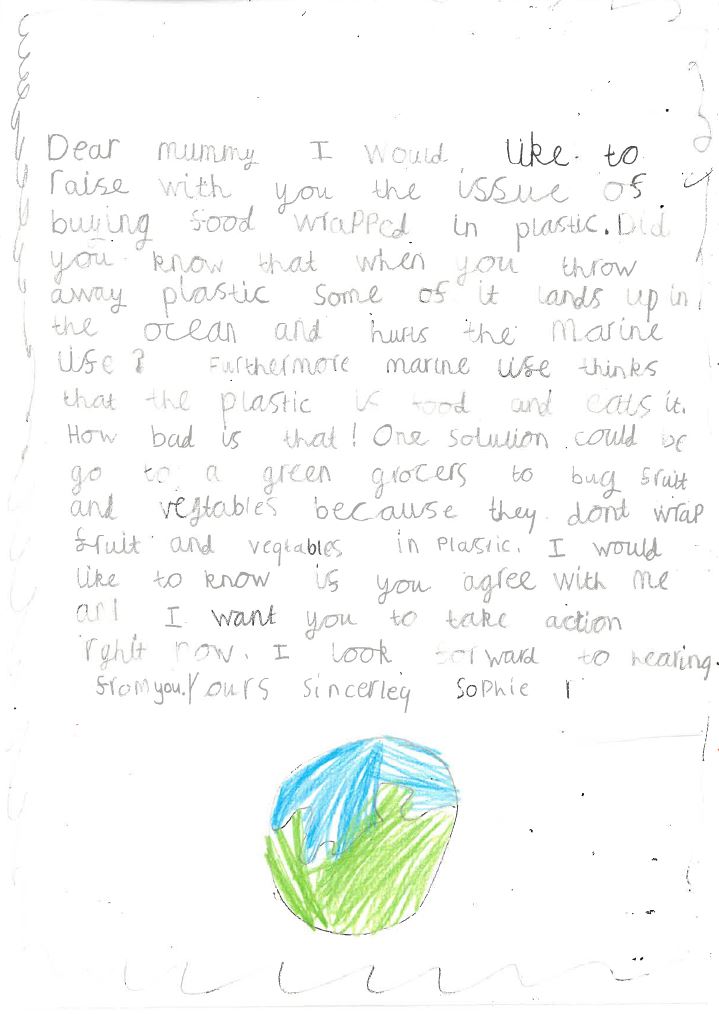 Dear mummy I would like to
raise with you the issue of
buying food wrapped in plastic. Did
you know that when you throw
away plastic some of it lands up in
the ocean and hurts the Marine
life? Furthermore marine life thinks
that the plastic is food and eats it.
How bad is that! One solution could be
go to a green grocers to bug fruit
and vegtables because they dont wrap
fruit and vegtables in plastic. I would
like to know if you agree with me
and I want you to take action
right now. I look forward to hearing.
from you. Yours sincerley Sophie